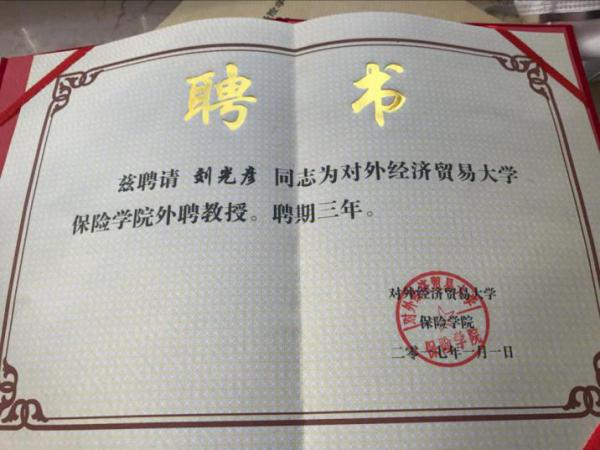 聘 书
兹聘请 刘光彦 同志为对外经济贸易大学
保险学院外聘教授。聘期三年。
对外经济贸易大学
保险学院
二零一七年一月一日